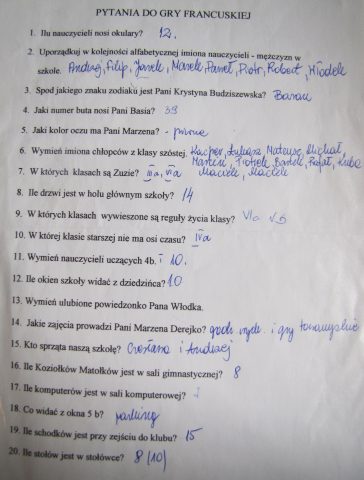 PYTANIA DO GRY FRANCUSKIEJ
1. Ilu nauczycieli nosi okulary? 12.
2. Uporządkuj w kolejności alfabetycznej imiona nauczycieli - mężczyzn w
szkole. Andrzej, Filip, Jacek, Marek, Paweł, Piotr, Robert, Włodek
3. Spod jakiego znaku zodiaku jest Pani Krystyna Budziszewska? Baran
4. Jaki numer buta nosi Pani Basia? 39
5. Jaki kolor oczu ma Pani Marzena? - piwne
6. Wymień imiona chłopców z klasy szóstej. Kacper, Łukasz, Mateusz, Michał,
Marcin, Piotrek, Bartek, Rafał, Kuba
Maciek, Maciek
7. W których klasach są Zuzie? IIIa, Va
8. Ile drzwi jest w holu głównym szkoły? 14
9. W których klasach wywieszone są reguły życia klasy? VIa
10. W której klasie starszej nie ma osi czasu? IVa
11. Wymień nauczycieli uczących 4b. i 10.
12. Ile okien szkoły widać z dziedzińca? 10
13. Wymień ulubione powiedzonko Pana Włodka.
14. Jakie zajęcia prowadzi Pani Marzena Derejko? godz. wych. i gry
15. Kto sprząta naszą szkołę? i Andrzej
16. Ile Koziołków Matołków jest w sali gimnastycznej? 8
17. Ile komputerów jest w sali komputerowej?
18. Co widać z okna 5 b? parking
19. Ile schodków jest przy zejściu do klubu? 15
20. Ile stołów jest w stołówce? 8 (10)